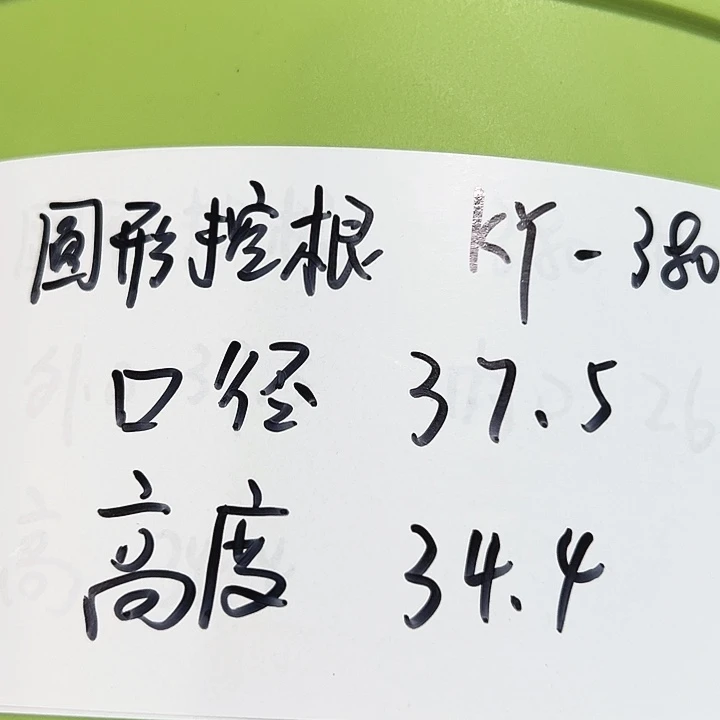 圆形控根 KY-380
口径 37.5
高度 34.4